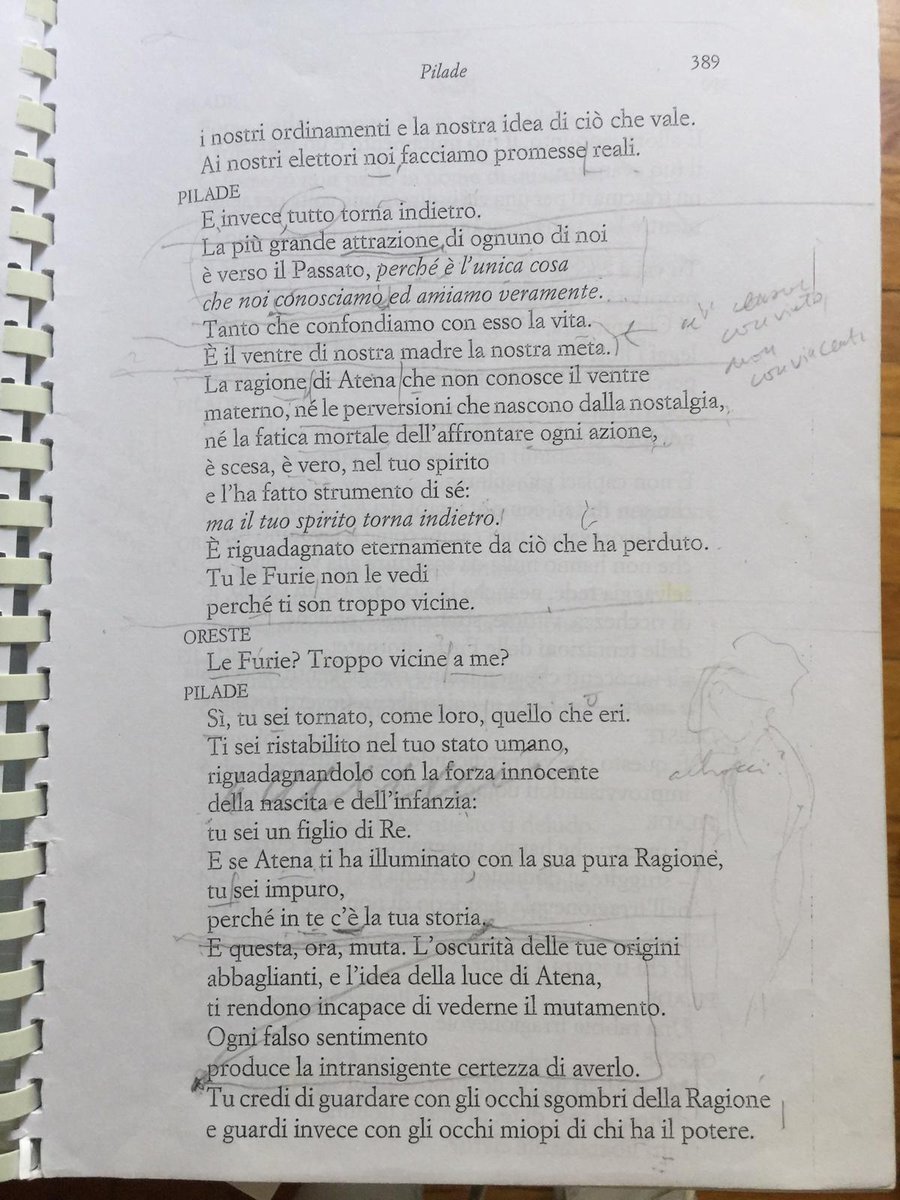 Pilade
389
i nostri ordinamenti e la nostra idea di ciò che vale.
Ai nostri elettori noi facciamo promesse reali.
PILADE
E invece tutto torna indietro.
La più grande attrazione di ognuno di noi
è verso il Passato, perché è l'unica cosa
che noi conosciamo ed amiamo veramente.
Tanto che confondiamo con esso la vita.
È il ventre di nostra madre la nostra meta.
La ragione di Atena che non conosce il ventre
materno, né le perversioni che nascono dalla nostalgia,
né la fatica mortale dell'affrontare ogni azione,
è scesa, è vero, nel tuo spirito
e l'ha fatto strumento di sé:
ma il tuo spirito torna indietro.
È riguadagnato eternamente da ciò che ha perduto.
Tu le Furie non le vedi
perché ti son troppo vicine.
ORESTE
Le Furie? Troppo vicine a me?
PILADE
Sì, tu sei tornato, come loro, quello che eri.
Ti sei ristabilito nel tuo stato umano,
riguadagnandolo con la forza innocente
della nascita e dell'infanzia:
tu sei un figlio di Re.
E se Atena ti ha illuminato con la sua pura Ragione,
tu sei impuro,
perché in te c'è la tua storia.
E questa, ora, muta. L'oscurità delle tue origini
abbaglianti, e l'idea della luce di Atena,
ti rendono incapace di vederne il mutamento.
Ogni falso sentimento
produce la intransigente certezza di averlo.
Tu credi di guardare con gli occhi sgombri della Ragione
e guardi invece con gli occhi miopi di chi ha il potere.
non